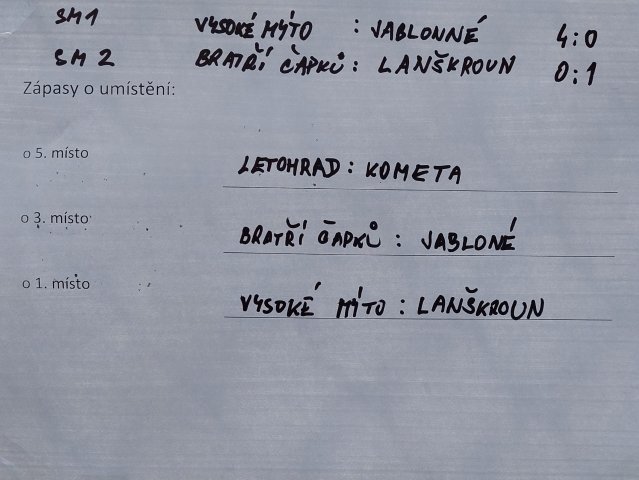 SM1 VYSOKÉ MÝTO : JABLONNÉ 4:0
SM2 BRATŘÍ ČAPKŮ : LANŠKROUN 0:1
Zápasy o umístění:
o 5. místo LETOHRAD : KOMETA
o 3. místo BRATŘÍ ČAPKŮ : JABLONÉ
o 1. místo VYSOKÉ MÝTO : LANŠKROUN